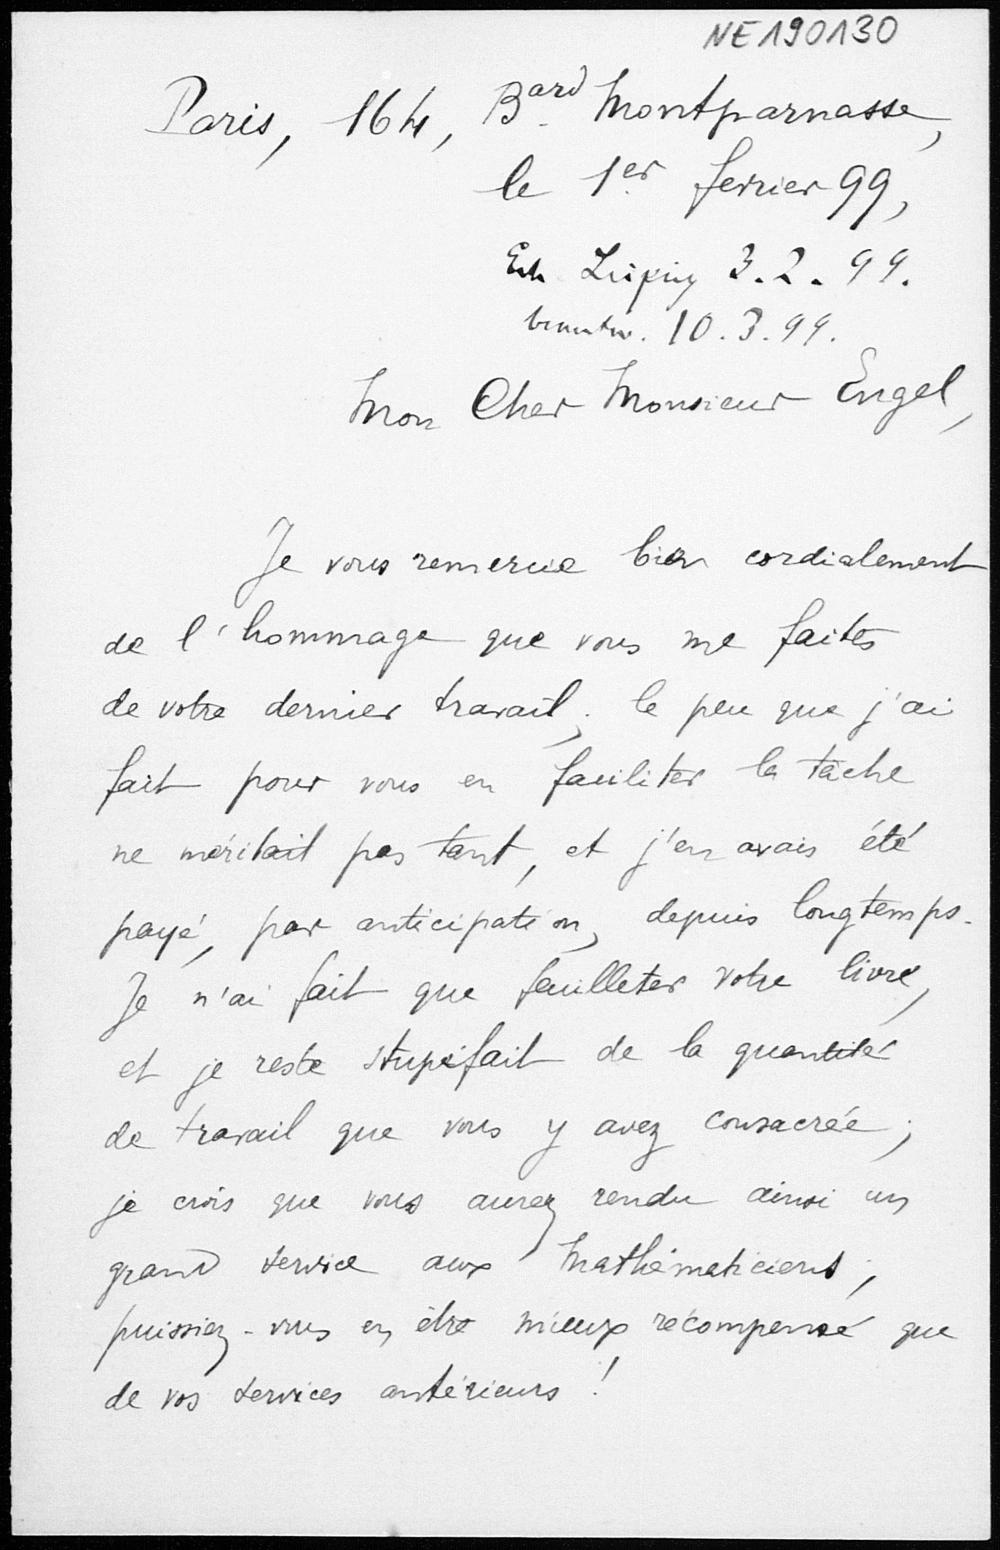 NE190130
Paris, 164, B.ard Montparnasse,
le 1er fevrier 99,
Erh. Leipzig 3.2.99.
beantw. 10.3.99.
Mon Cher Monsieur Engel,
Je vous remercie bien cordialement
de l'hommage que vous me faites
de votre dernier travail ; le peu que j'ai
fait pour vous en faciliter la tâche
ne méritait pas tant, et j'en avais été
payé, par anticipation, depuis longtemps.
Je n'ai fait que feuilleter votre livre,
et je reste stupéfait de la quantité
de travail que vous y avez consacrée ;
je crois que vous aurez rendu ainsi un
grand service aux Mathématiciens ;
puissiez-vous en être mieux récompensé que
de vos services antérieurs !